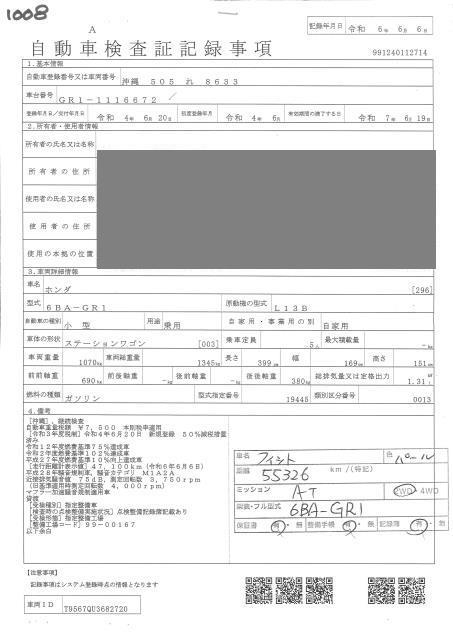 1008
A
記録年月日 令和 6年 6月 6日
自動車検査証記録事項
991240112714
1.基本情報
自動車登録番号又は車両番号 沖縄 505 れ 8633
車台番号 GR1-1116672
登録年月日/交付年月日 令和 4年 6月 20日 初度登録年月 令和 4年 6月 有効期間の満了する日 令和 7年 6月 19日
2.所有者・使用者情報
所有者の氏名又は名称
所有者の住所
使用者の氏名又は名称
使用者の住所
使用の本拠の位置
3.車両詳細情報
車名 ホンダ [296]
型式 6BA-GR1 原動機の型式 L13B
自動車の種別 小型 用途 乗用 自家用・事業用の別 自家用
車体の形状 ステーションワゴン [003] 乗車定員 5人 最大積載量 -kg
車両重量 1070kg 車両総重量 1345kg 長さ 399cm 幅 169cm 高さ 151cm
前前軸重 690kg 前後軸重 -kg 後前軸重 -kg 後後軸重 380kg 総排気量又は定格出力 1.31L
燃料の種類 ガソリン 型式指定番号 19445 類別区分番号 0013
4.備考
[沖縄], 継続検査
自動車重量税額 ¥7,500 本則税率適用
[令和3年度税制] 令和4年6月20日 新規登録 50%減税措置
済み
令和12年度燃費基準75%達成車
令和2年度燃費基準102%達成車
平成27年度燃費基準10%向上達成車
[走行距離計表示値] 47,100km (令和6年6月6日)
平成28年騒音規制車, 騒音カテゴリ M1A2A
近接排気騒音値 75dB, 測定回転数 3,750rpm
マフラー加速騒音規制適用車
[受検種別] 指定整備車
[検査時の点検整備実施状況] 点検整備記録簿記載あり
[受検形態] 指定整備工場
[整備工場コード] 99-00167
以下余白
車名 フィット 色 パール
距離 55326 km /(特記)
ミッション AT 2WD・4WD
類別・フル型式 6BA-GR1
保証書 有・無 整備手帳 有・無 記録簿 有・無
【注意事項】
記録事項はシステム登録時点の情報となります
車両ID T9567QU3682720